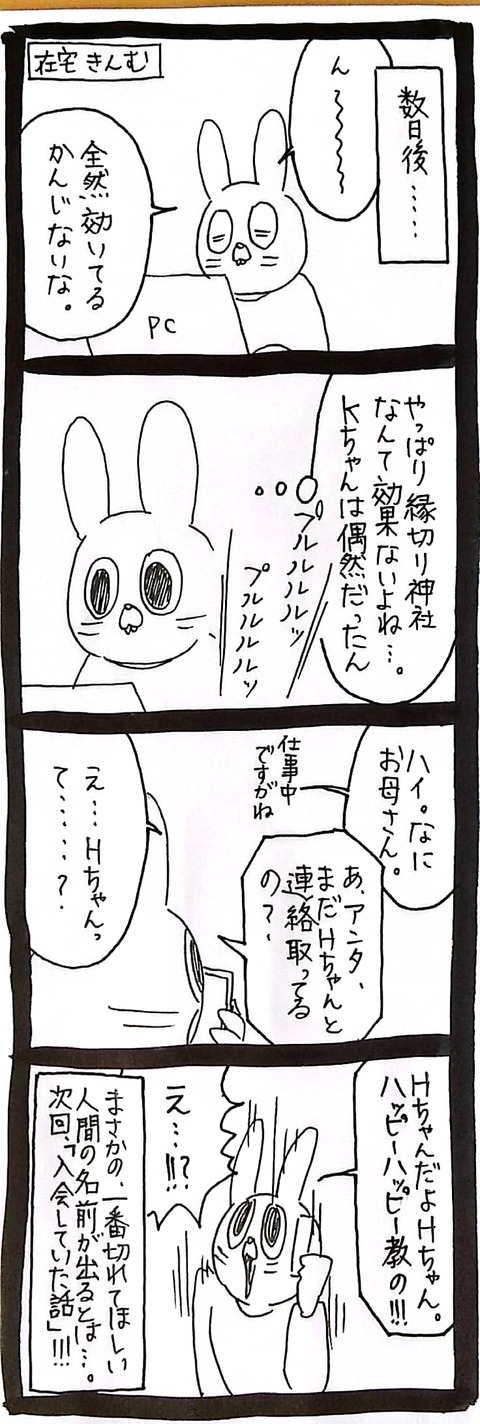 数日後……
ん〜〜〜〜
在宅きんむ
全然効いてる
かんじないな。
PC
やっぱり縁切り神社
なんて効果ないよね…。
Kちゃんは偶然だったん
プルルルルッ
プルルルルッ
ハイ。なに
お母さん。
仕事中
ですがね
あ、アンタ、
まだHちゃんと
連絡取ってる
の?
え…Hちゃんっ
て……?
Hちゃんだよ Hちゃん。
ハッピーハッピー教の!!!
え…!!?
まさかの、一番切れてほしい
人間の名前が出るとは…。
次回「入会していた話」!!!